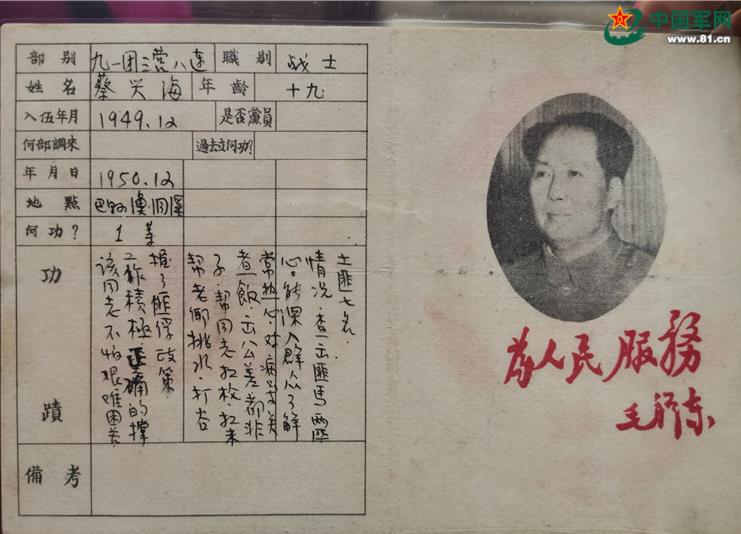 中国军网
www.81.cn
部别 九一团三营八连 职别 战士
姓名 蔡兴海 年龄 十九
入伍年月 1949.12 是否黨員
何部調來 过去立何功?
年月日 1950.12
地點
何功? 1
功蹟
该同志不怕艰难困苦
工作积极正确的撑
握了匪俘政策
帮老乡挑水·打谷
子·帮同志扛枪·扛米
煮飯·出公差都非
常热心·对病号关
心·能深入群众了解
情况·查出匪馬两匹
土匪七名·
備考
为人民服務
毛泽东